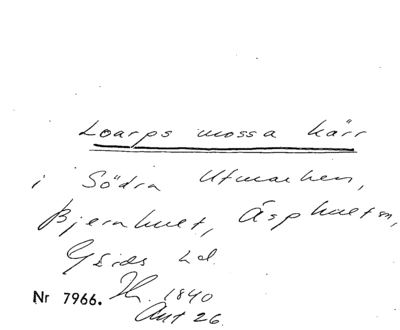 Loarps mossa kärr
i Södra Utmarken,
Bjernhult, Äsphults sn,
Gärds hd.
Nr 7966. Th. 1840
Ant 26.